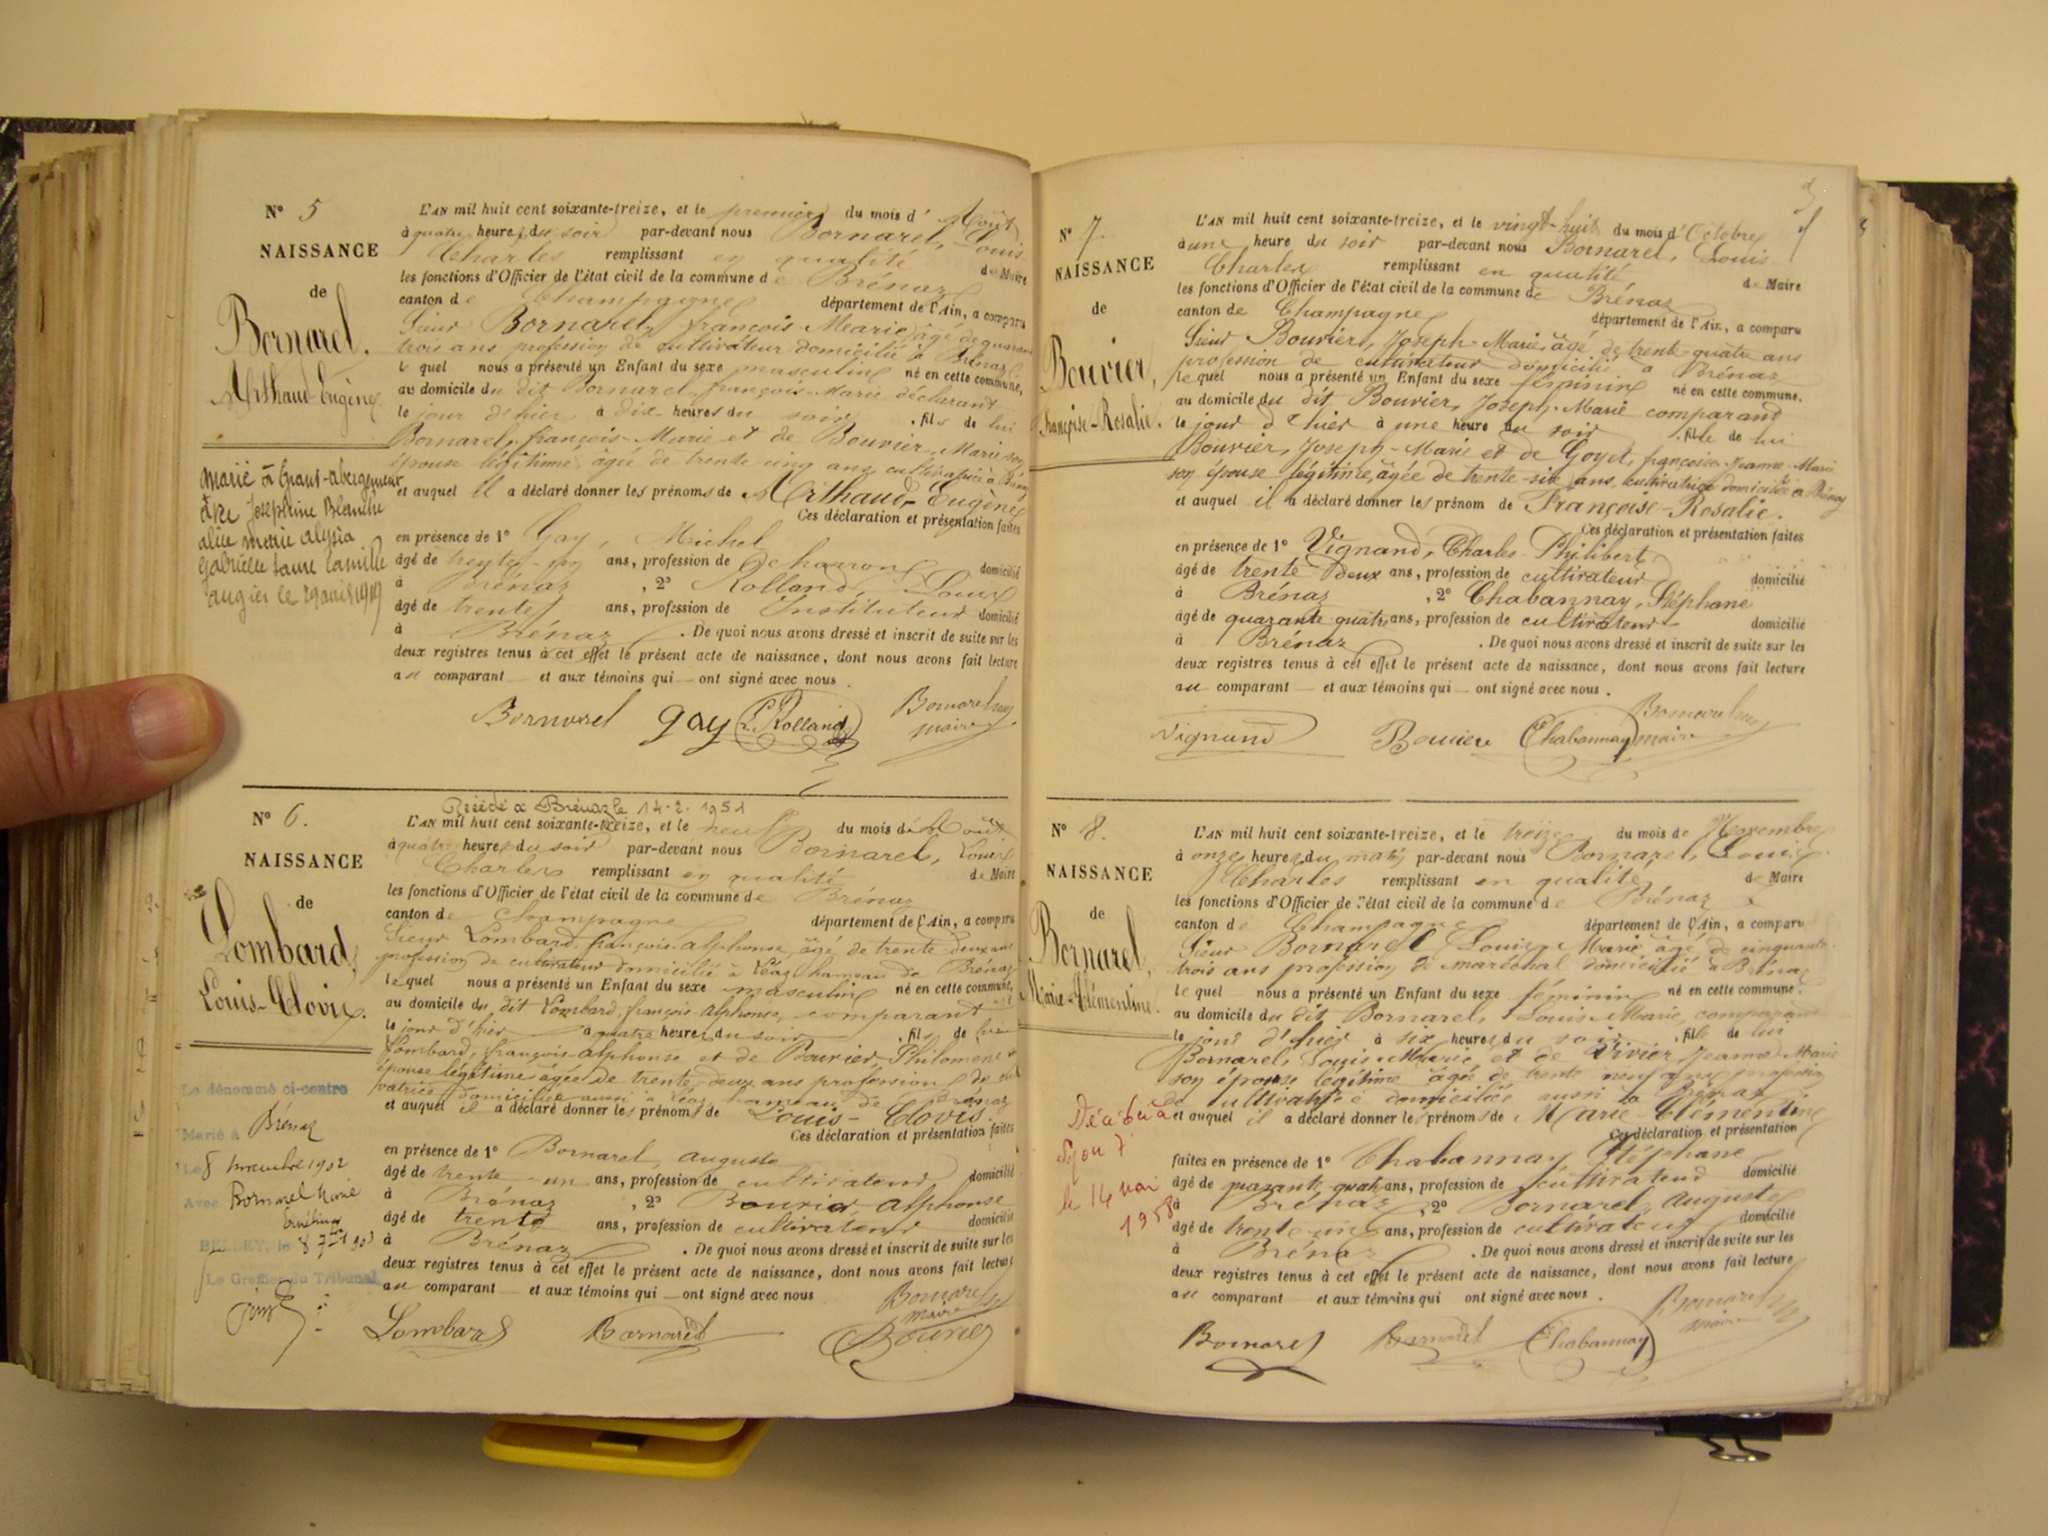 N° 5
NAISSANCE
de
Bornarel,
Arthaud-Eugène
L'AN mil huit cent soixante-treize, et le premier du mois d'Août
à quatre heures du soir par-devant nous Bornarel, Louis
Charles remplissant en qualité de Maire
les fonctions d'Officier de l'état civil de la commune de Brénaz
canton de Champagne département de l'Ain, a comparu
Sieur Bornarel, françois-Marie, âgé de quarante
trois ans profession de cultivateur domicilié à Brénaz
le quel nous a présenté un Enfant du sexe masculin né en cette commune,
au domicile du dit Bornarel françois-Marie déclarant
le jour d'hier à dix heures du soir, fils de lui
Bornarel, françois-Marie et de Bouvier, Marie son
épouse légitime âgée de trente cinq ans cultivatrice à Brénaz
et auquel il a déclaré donner les prénoms de Arthaud-Eugène
Ces déclaration et présentation faites
en présence de 1° Gay, Michel
âgé de ans, profession de charron domicilié
à Brénaz, 2° Rolland, Louis
âgé de trente ans, profession de Instituteur domicilié
à Brénaz. De quoi nous avons dressé et inscrit de suite sur les
deux registres tenus à cet effet le présent acte de naissance, dont nous avons fait lecture
au comparant et aux témoins qui ont signé avec nous.
Bornarel gay L. Rolland Bornarel
maire
Marié à
Joséphine Blanche
alice marie
Gabrielle Camille
le 29 avril 1919
N° 6.
NAISSANCE
de
Lombard,
Louis-Clovis.
Décédé à Brénaz le 14-2-1951
L'AN mil huit cent soixante-treize, et le neuf du mois d'Août
à quatre heures du soir par-devant nous Bornarel, Louis
Charles remplissant en qualité de Maire
les fonctions d'Officier de l'état civil de la commune de Brénaz
canton de Champagne département de l'Ain, a comparu
Sieur Lombard, françois-alphonse, âgé de trente deux ans
profession de cultivateur domicilié à Léaz hameau de Brénaz
le quel nous a présenté un Enfant du sexe masculin né en cette commune,
au domicile du dit Lombard, françois-alphonse, comparant
le jour d'hier à quatre heures du soir, fils de lui
Lombard, françois-alphonse et de Bouvier Philomène
épouse légitime âgée de trente deux ans profession de cul
tivatrice domiciliée aussi à Léaz hameau de Brénaz
et auquel il a déclaré donner les prénoms de Louis-Clovis.
Ces déclaration et présentation faites
en présence de 1° Bornarel, auguste
âgé de trente-un ans, profession de cultivateur domicilié
à Brénaz, 2° Bouvier alphonse
âgé de trente ans, profession de cultivateur domicilié
à Brénaz. De quoi nous avons dressé et inscrit de suite sur les
deux registres tenus à cet effet le présent acte de naissance, dont nous avons fait lecture
au comparant et aux témoins qui ont signé avec nous
Bornarel
maire
Lombard Bornarel Bouvier
Le dénommé ci-contre
Marié à Brénaz
Le 8 novembre 1902
Avec Bornarel Marie
BELLEY, le 8 7bre 1903
Le Greffier du Tribunal
N° 7.
NAISSANCE
de
Bouvier,
Françoise-Rosalie.
L'AN mil huit cent soixante-treize, et le vingt-huit du mois d'Octobre
à une heure du soir par-devant nous Bornarel, Louis
Charles remplissant en qualité de Maire
les fonctions d'Officier de l'état civil de la commune de Brénaz
canton de Champagne département de l'Ain, a comparu
Sieur Bouvier, Joseph-Marie, âgé de trente-quatre ans
profession de cultivateur domicilié à Brénaz
le quel nous a présenté un Enfant du sexe féminin né en cette commune.
au domicile du dit Bouvier, Joseph-Marie comparant
le jour d'hier à une heure du soir, fille de lui
Bouvier, Joseph-Marie et de Goyet, françoise-Jeanne-Marie
son épouse légitime, âgée de trente-six ans, cultivatrice domiciliée à Brénaz
et auquel il a déclaré donner les prénom de Françoise-Rosalie.
Ces déclaration et présentation faites
en présence de 1° Vignand, Charles-Philibert
âgé de trente deux ans, profession de cultivateur domicilié
à Brénaz, 2° Chabannay, Stéphane
âgé de quarante quatre ans, profession de cultivateur domicilié
à Brénaz. De quoi nous avons dressé et inscrit de suite sur les
deux registres tenus à cet effet le présent acte de naissance, dont nous avons fait lecture
au comparant et aux témoins qui ont signé avec nous.
Vignand Bouvier Chabannay Bornarel
maire
N° 8.
NAISSANCE
de
Bornarel,
Marie-Clémentine.
L'AN mil huit cent soixante-treize, et le treize du mois de Novembre
à onze heures du matin par-devant nous Bornarel, Louis
Charles remplissant en qualité de Maire
les fonctions d'Officier de l'état civil de la commune de Brénaz
canton de Champagne département de l'Ain, a comparu
Sieur Bornarel Louis-Marie âgé de cinquante
trois ans profession de maréchal domicilié à Brénaz
le quel nous a présenté un Enfant du sexe féminin né en cette commune.
au domicile du dit Bornarel, Louis-Marie, comparant
le jour d'hier à six heures du soir, fille de lui
Bornarel, Louis-Marie et de Vivier Jeanne-Marie
son épouse légitime âgée de trente neuf ans profession
de cultivatrice domiciliée aussi à Brénaz
et auquel il a déclaré donner les prénoms de Marie-Clémentine
Ces déclaration et présentation
faites en présence de 1° Chabannay Stéphane
âgé de quarante quatre ans, profession de cultivateur domicilié
à Brénaz, 2° Bornarel, auguste
âgé de trente-un ans, profession de cultivateur domicilié
à Brénaz. De quoi nous avons dressé et inscrit de suite sur les
deux registres tenus à cet effet le présent acte de naissance, dont nous avons fait lecture
au comparant et aux témoins qui ont signé avec nous.
Bornarel Bornarel Chabannay Bornarel
maire
Décédée à
Lyon 7
le 14 mai
1958